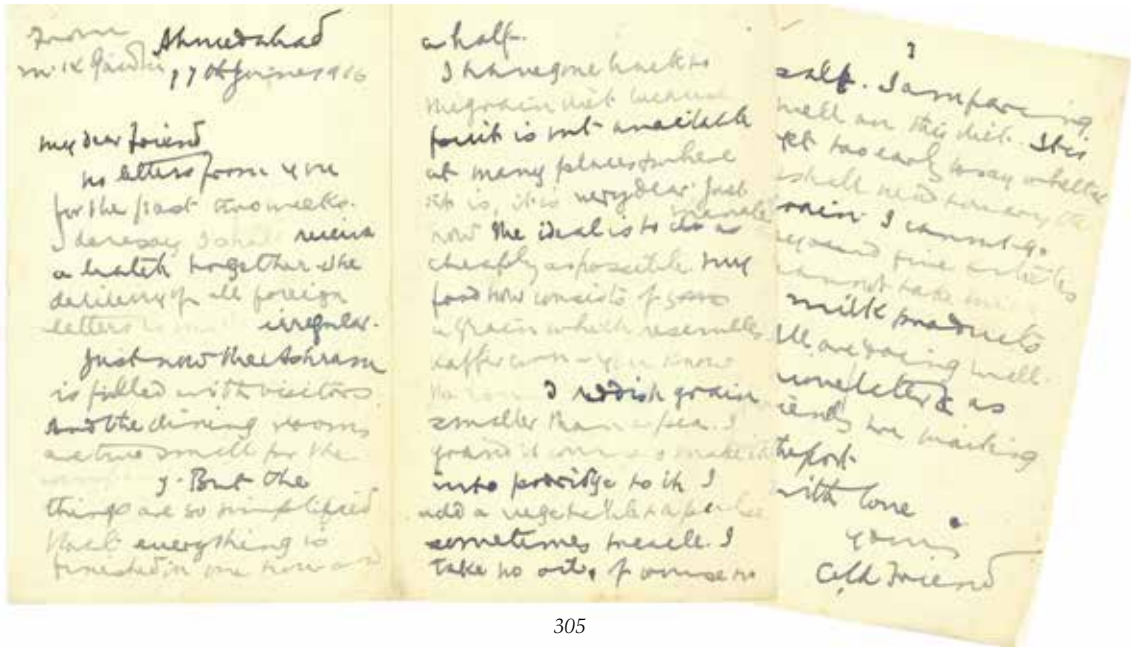 From
M. K. Gandhi
Ahmedabad
17th June 1916
My dear Friend
no letters from you
for the past two weeks.
I daresay I shall receive
a batch together. The
delivery of all foreign
letters is most irregular.
Just now the Ashram
is filled with visitors
and the dining rooms
are too small for the
y. But the
things are so simplified
that everything is
finished in one hour and
a half.
I have gone back to
the grain diet because
fruit is not available
at many places & where
it is, it is very dear. Just
now the ideal is to do as
cheaply as possible. My
food now consists of
a grain which resembles
kaffir corn - you know
I reddish grain
smaller than a pea. I
grind it & make it
into porridge to it I
add a vegetable &
sometimes treacle. I
take no oil, of course no
3
salt. I am faring
well on this diet. It is
yet too early to say whether
shall need to vary the
grain. I cannot go
beyond five articles
cannot take
milk products
All are going well.
letter & as
friends are waiting
the post
With love
yours
Old Friend
305